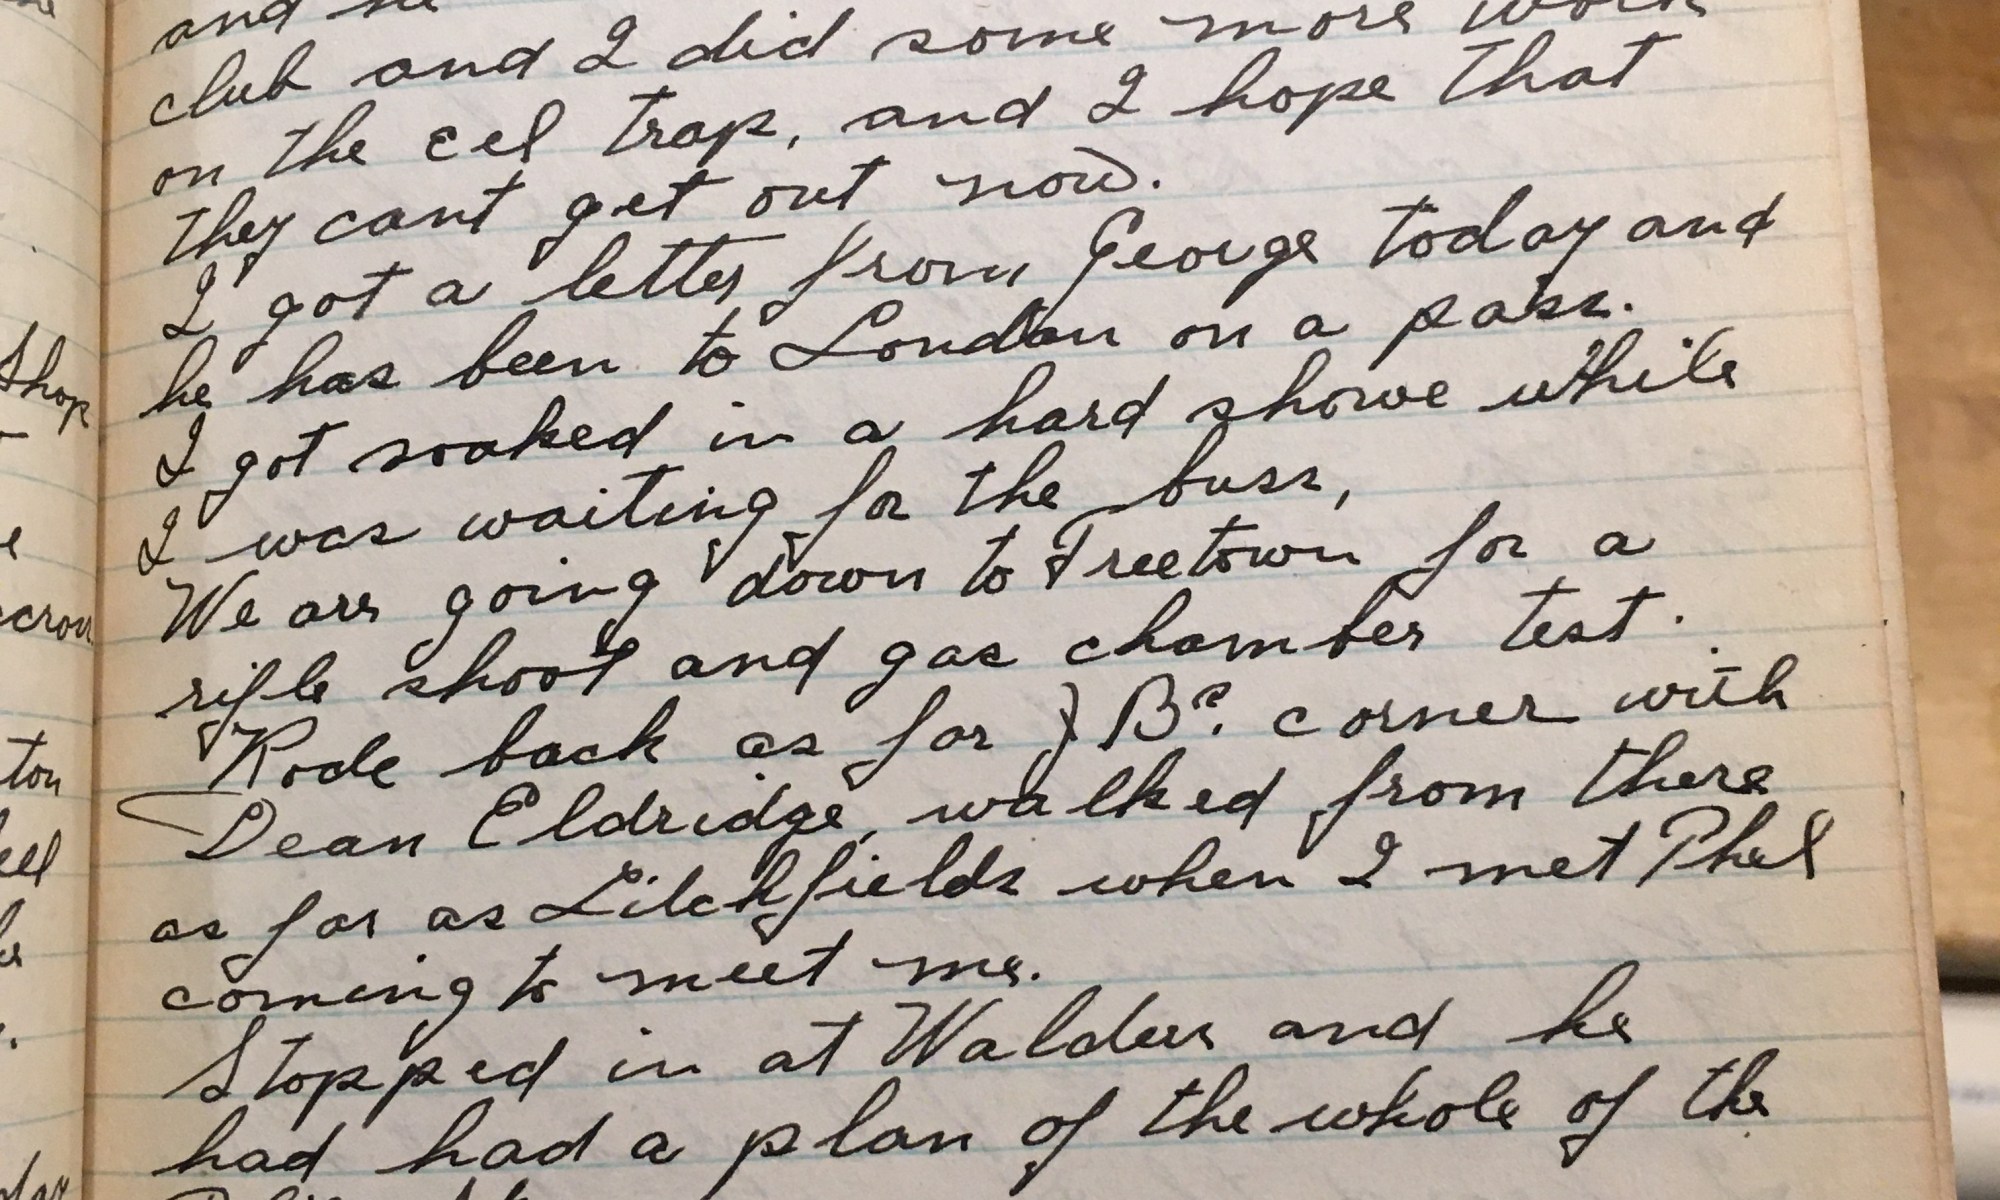 and he
club and I did some more work
on the eel trap, and I hope that
they cant get out now.
I got a letter from George today and
he has been to London on a pass.
I got soaked in a hard showe while
I was waiting for the buss,
We are going down to Freetown for a
rifle shoot and gas chamber test.
Rode back as far J Bs. corner with
Dean Eldridge, walked from there
as far as Litchfields when I met Phil
coming to meet me.
Stopped in at Walders and he
had had a plan of the whole of the
Shop
ton